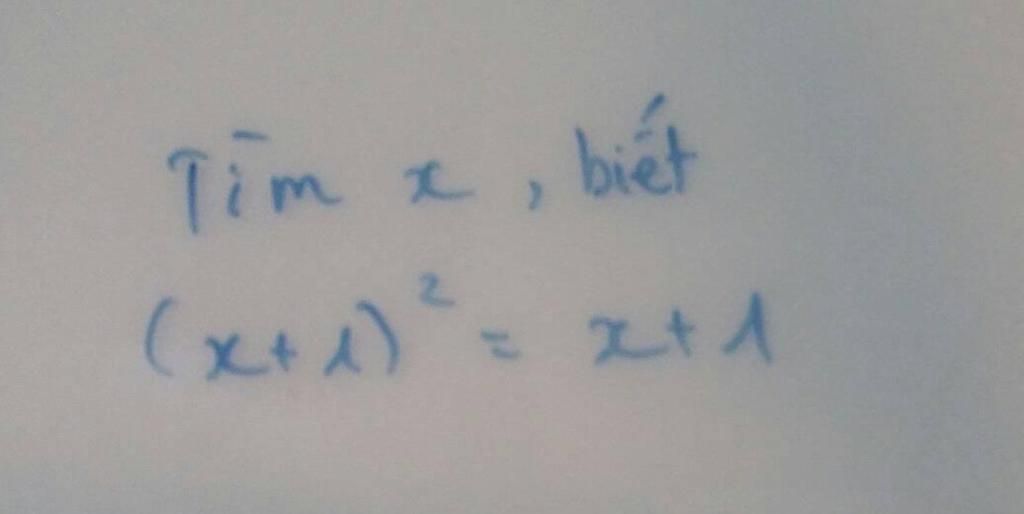 Tìm x, biết
(x+1)² = x+1